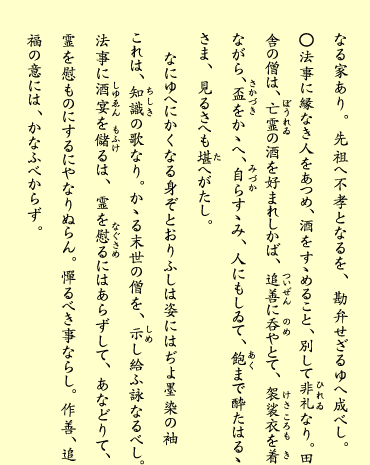 なる家あり。先祖へ不孝となるを、勘弁せざるゆへ成べし。
〇法事に縁なき人をあつめ、酒をすゝめること、別して非礼なり。田
舎の僧は、亡霊の酒を好まれしかば、追善に呑やとて、袈裟衣を着
ながら、盃をかゝへ、自らすゝみ、人にもしゐて、飽まで酔たはるゝ
さま、見るさへも堪へがたし。
なにゆへにかくなる身ぞとおりふしは姿にはぢよ墨染の袖
これは、知識の歌なり。かゝる末世の僧を、示し給ふ詠なるべし。
法事に酒宴を儲るは、霊を慰るにはあらずして、あなどりて、
霊を慰ものにするにやなりぬらん。憚るべき事ならし。作善、追
福の意には、かなふべからず。